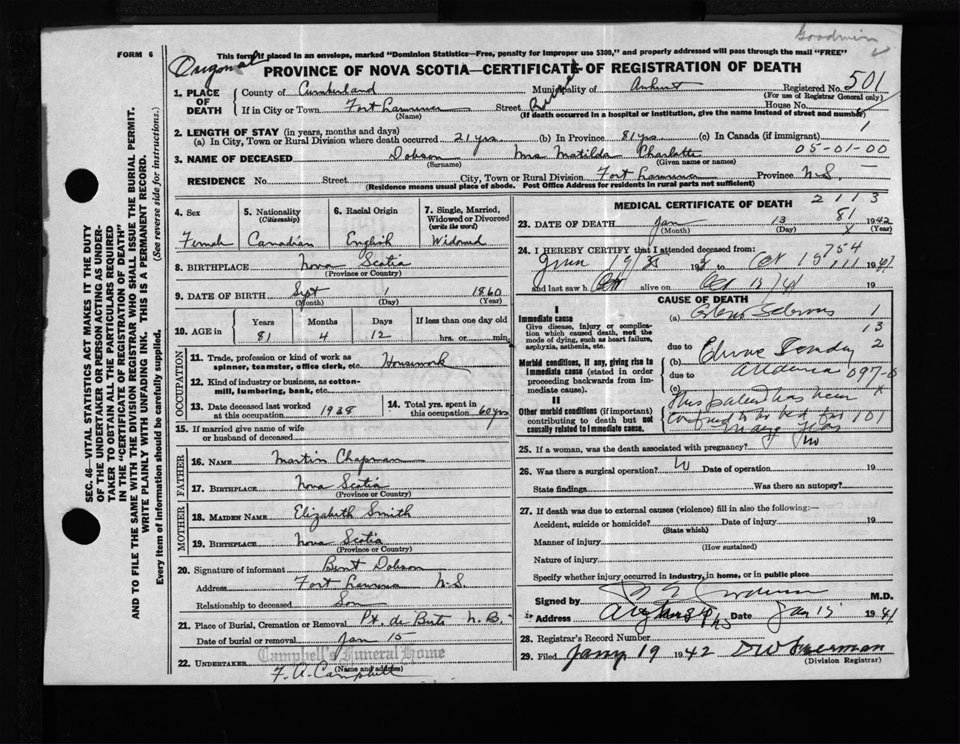 Goodwin
FORM 6
This form if placed in an envelope, marked "Dominion Statistics—Free, penalty for improper use $300," and properly addressed will pass through the mail "FREE"
Original
PROVINCE OF NOVA SCOTIA—CERTIFICATE OF REGISTRATION OF DEATH
1. PLACE OF DEATH County of Cumberland Municipality of Amherst Registered No. 501
(For use of Registrar General only)
If in City or Town Fort Lawrence Street House No.
(Name) (If death occurred in a hospital or institution, give the name instead of street and number)
1
2. LENGTH OF STAY (in years, months and days)
(a) In City, Town or Rural Division where death occurred 21 yrs (b) In Province 81 yrs (c) In Canada (if immigrant)
3. NAME OF DECEASED Dobson Mrs Matilda Charlotte 05-01-00
(Surname) (Given name or names)
RESIDENCE No. Street City, Town or Rural Division Fort Lawrence Province N.S.
(Residence means usual place of abode. Post Office Address for residents in rural parts not sufficient)
4. Sex Female
5. Nationality (Citizenship) Canadian
6. Racial Origin English
7. Single, Married, Widowed or Divorced (write the word) Widowed
8. BIRTHPLACE Nova Scotia
(Province or Country)
9. DATE OF BIRTH Sept 1 1860
(Month) (Day) (Year)
10. AGE in Years Months Days If less than one day old
81 4 12 hrs. or min.
OCCUPATION
11. Trade, profession or kind of work as spinner, teamster, office clerk, etc. Housework
12. Kind of industry or business, as cotton-mill, lumbering, bank, etc.
13. Date deceased last worked at this occupation 1938
14. Total yrs. spent in this occupation 60 yrs
15. If married give name of wife or husband of deceased
FATHER
16. NAME Martin Chapman
17. BIRTHPLACE Nova Scotia
(Province or Country)
MOTHER
18. MAIDEN NAME Elizabeth Smith
19. BIRTHPLACE Nova Scotia
(Province or Country)
20. Signature of informant Bent Dobson
Address Fort Lawrence N.S.
Relationship to deceased Son
21. Place of Burial, Cremation or Removal Pt. de Bute N.B.
Date of burial or removal Jan 15
Campbell's Funeral Home
22. UNDERTAKER F. A. Campbell
(Name and address)
MEDICAL CERTIFICATE OF DEATH 2113
81
23. DATE OF DEATH Jan 13 1942
(Month) (Day) (Year)
24. I HEREBY CERTIFY that I attended deceased from: 754
and last saw h alive on
CAUSE OF DEATH
I
Immediate cause
Give disease, injury or complication which caused death, not the mode of dying, such as heart failure, asphyxia, asthenia, etc.
(a) 1
13
due to 2
Morbid conditions, if any, giving rise to immediate cause (stated in order proceeding backwards from immediate cause).
(b)
due to 097-
(c)
II
Other morbid conditions (if important) contributing to death but not causally related to immediate cause.
This patient has been
confined to her bed for 101
many years
25. If a woman, was the death associated with pregnancy? No
26. Was there a surgical operation? Date of operation 19
State findings Was there an autopsy?
27. If death was due to external causes (violence) fill in also the following:—
Accident, suicide or homicide? Date of injury 19
(State which)
Manner of injury
(How sustained)
Nature of injury
Specify whether injury occurred in industry, in home, or in public place
Signed by M.D.
Address Amherst NS Date Jan 15 1941
28. Registrar's Record Number
29. Filed Jany 19 1942
(Division Registrar)
SEC. 46—VITAL STATISTICS ACT MAKES IT THE DUTY OF THE UNDERTAKER OR PERSON ACTING AS UNDERTAKER TO OBTAIN ALL THE PARTICULARS REQUIRED IN THE "CERTIFICATE OF REGISTRATION OF DEATH" AND TO FILE THE SAME WITH THE DIVISION REGISTRAR WHO SHALL ISSUE THE BURIAL PERMIT.
WRITE PLAINLY WITH UNFADING INK. THIS IS A PERMANENT RECORD.
Every item of information should be carefully supplied. (See reverse side for instructions.)